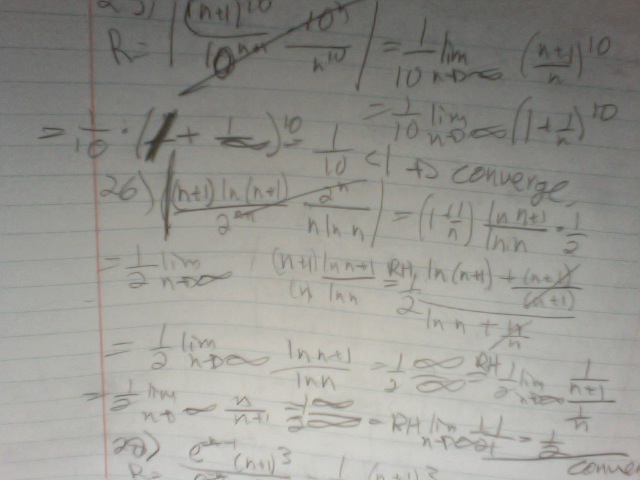 R = | (n+1)^10 / 10^(n+1) · 10^n / n^10 | = 1/10 lim n→∞ ((n+1)/n)^10
= 1/10 lim n→∞ (1 + 1/n)^10
= 1/10 · (1 + 1/∞)^10 = 1/10 < 1 → converge,
26) | (n+1) ln(n+1) / 2^(n+1) · 2^n / n ln n | = (1 + 1/n) ln n+1 / ln n · 1/2
= 1/2 lim n→∞ (n+1) ln n+1 / (n ln n RH = 1/2 ln(n+1) + (n+1)/(n+1) / ln n + n/n
= 1/2 lim n→∞ ln n+1 / ln n = 1/2 ∞/∞ = RH 1/2 lim n→∞ 1/(n+1) / 1/n
= 1/2 lim n→∞ n/(n+1) = 1/2 ∞/∞ = RH lim n→∞ = 1/2
conver
(n+1)^3
R =